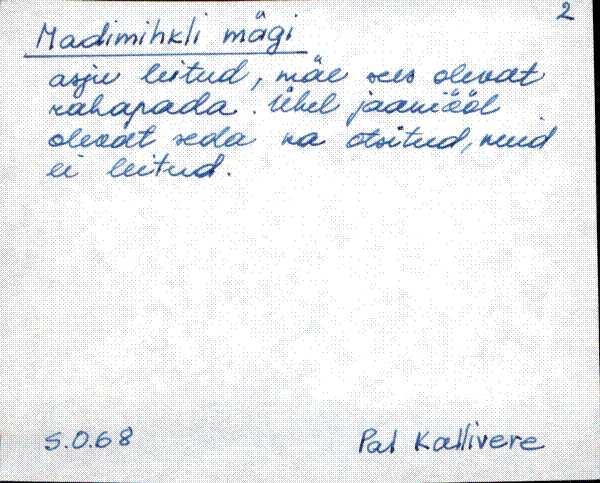 2
Madimihkli mägi
asju leitud, mäe sees olevat
rahapada. Ühel jaaniööl
olevat seda ka otsitud, kuid
ei leitud.
S.O.68
Pal Kallivere